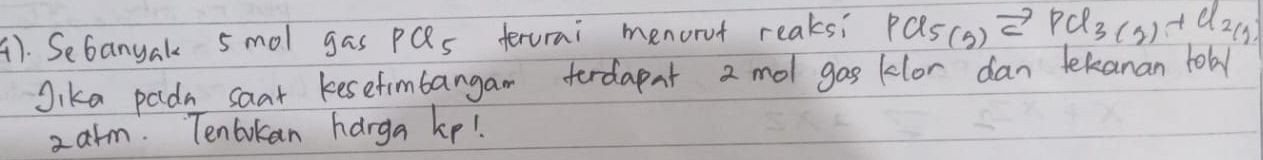 4). Sebanyak 5 mol gas PCl5 terurai menurut reaksi PCl5(g) ⇌ PCl3(g) + Cl2(g)
Jika pada saat kesetimbangan terdapat 2 mol gas klor dan tekanan total
2 atm. Tentukan harga kp!.